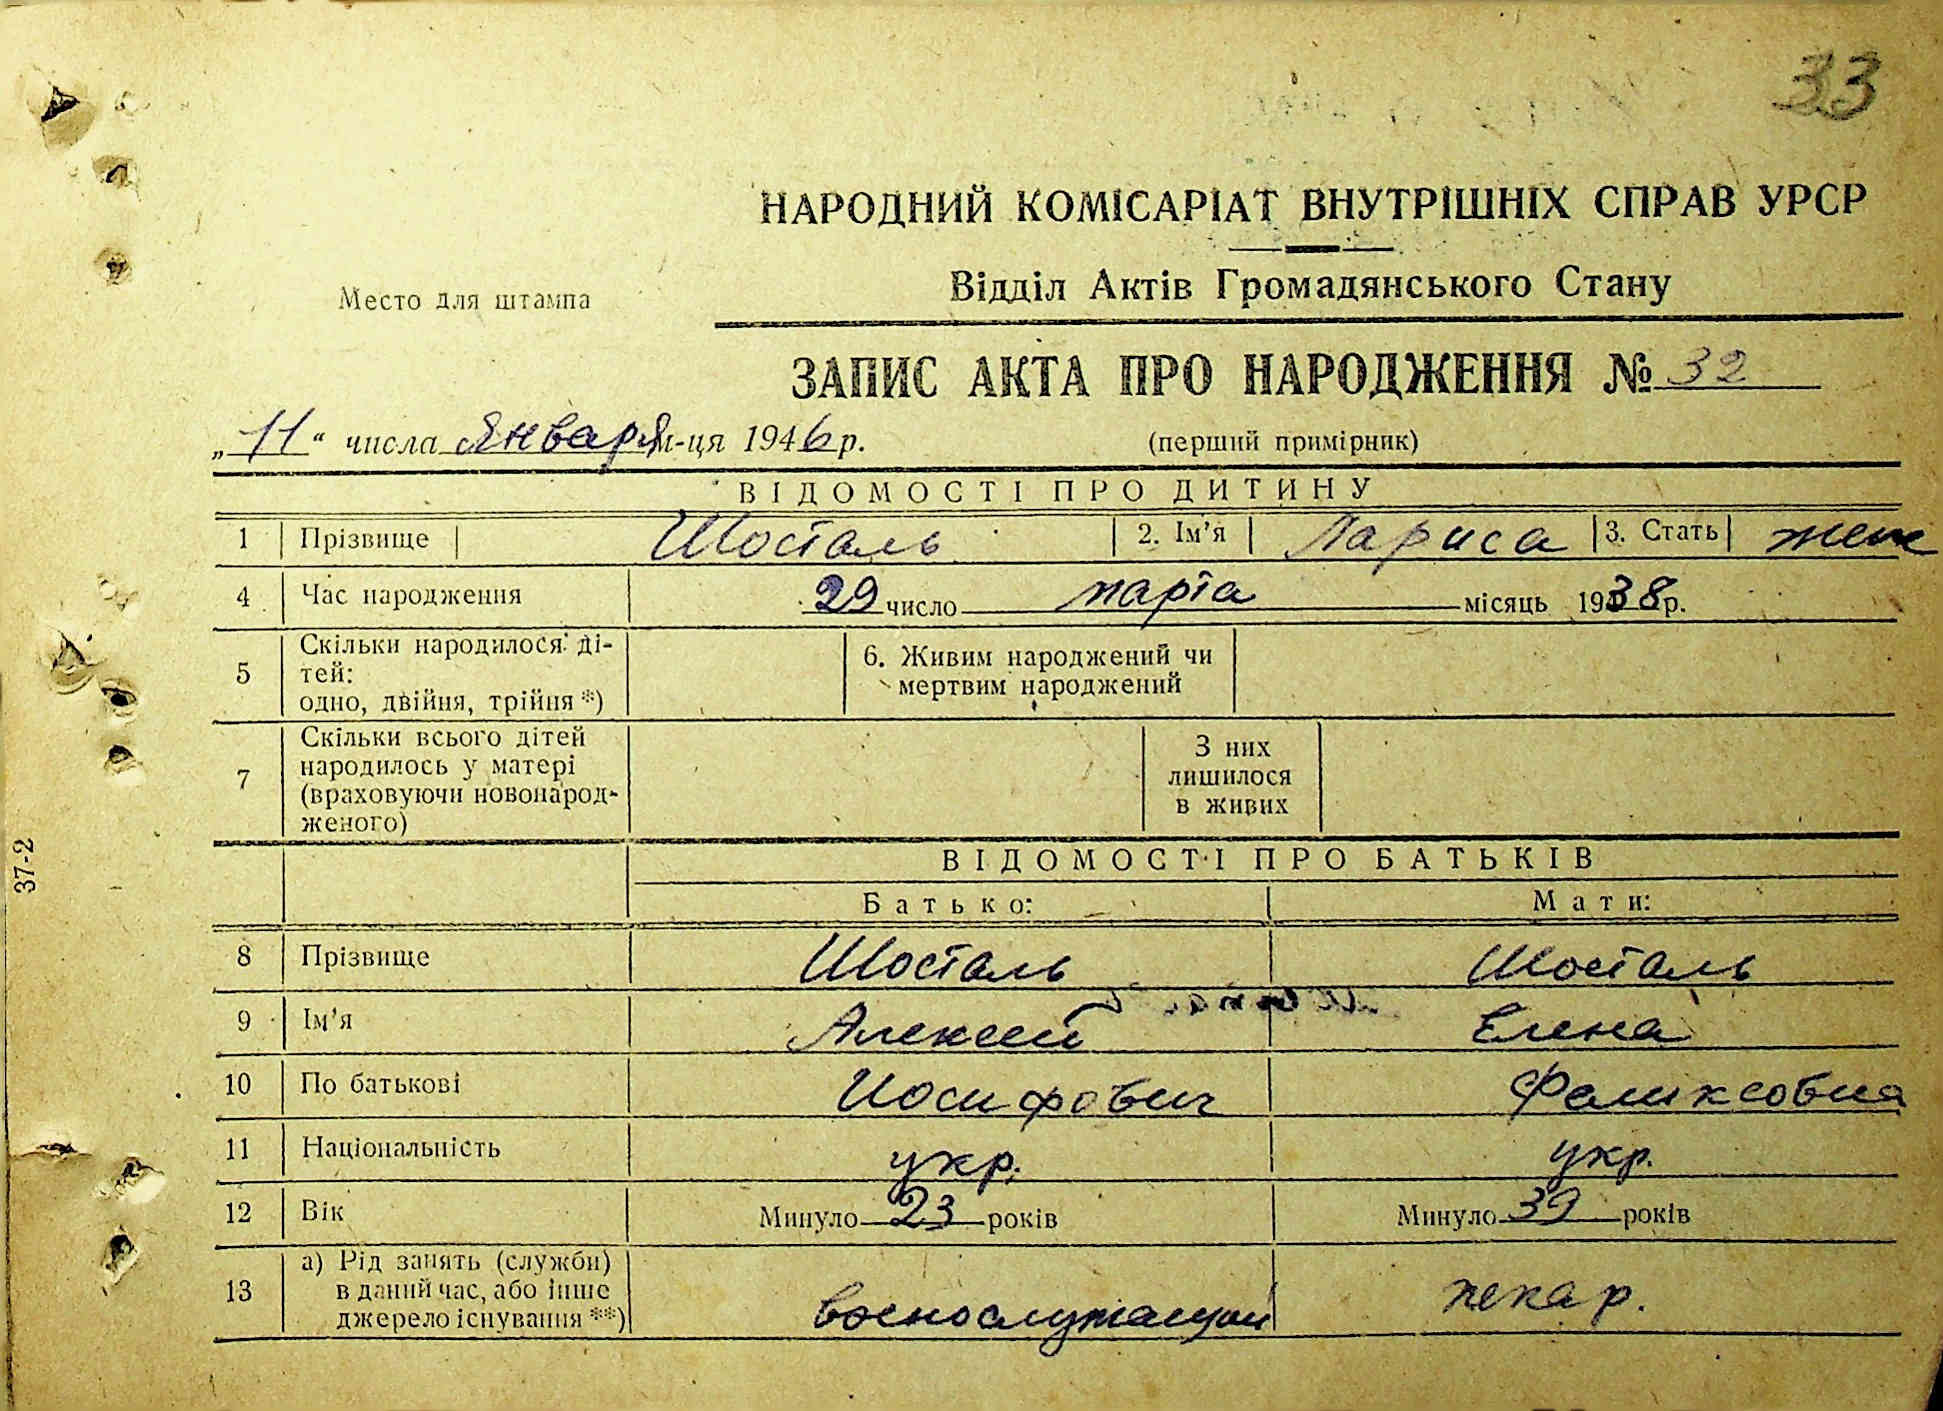 33
НАРОДНИЙ КОМІСАРІАТ ВНУТРІШНІХ СПРАВ УРСР
Место для штампа
Відділ Актів Громадянського Стану
ЗАПИС АКТА ПРО НАРОДЖЕННЯ № 32
„11“ числа января м-ця 1946 р. (перший примірник)
ВІДОМОСТІ ПРО ДИТИНУ
1 Прізвище Шосталь 2. Ім’я Лариса 3. Стать жен
4 Час народження 29 число марта місяць 1938 р.
5 Скільки народилося дітей: одно, двійня, трійня *) 6. Живим народжений чи мертвим народжений
7 Скільки всього дітей народилось у матері (враховуючи новонародженого) З них лишилося в живих
ВІДОМОСТІ ПРО БАТЬКІВ
Батько: Мати:
8 Прізвище Шосталь Шосталь
9 Ім’я Алексей Елена
10 По батькові Иосифович Феликсовна
11 Національність укр. укр.
12 Вік Минуло 23 років Минуло 39 років
13 а) Рід занять (служби) в даний час, або інше джерело існування **) военослужащий пекар.
37-2